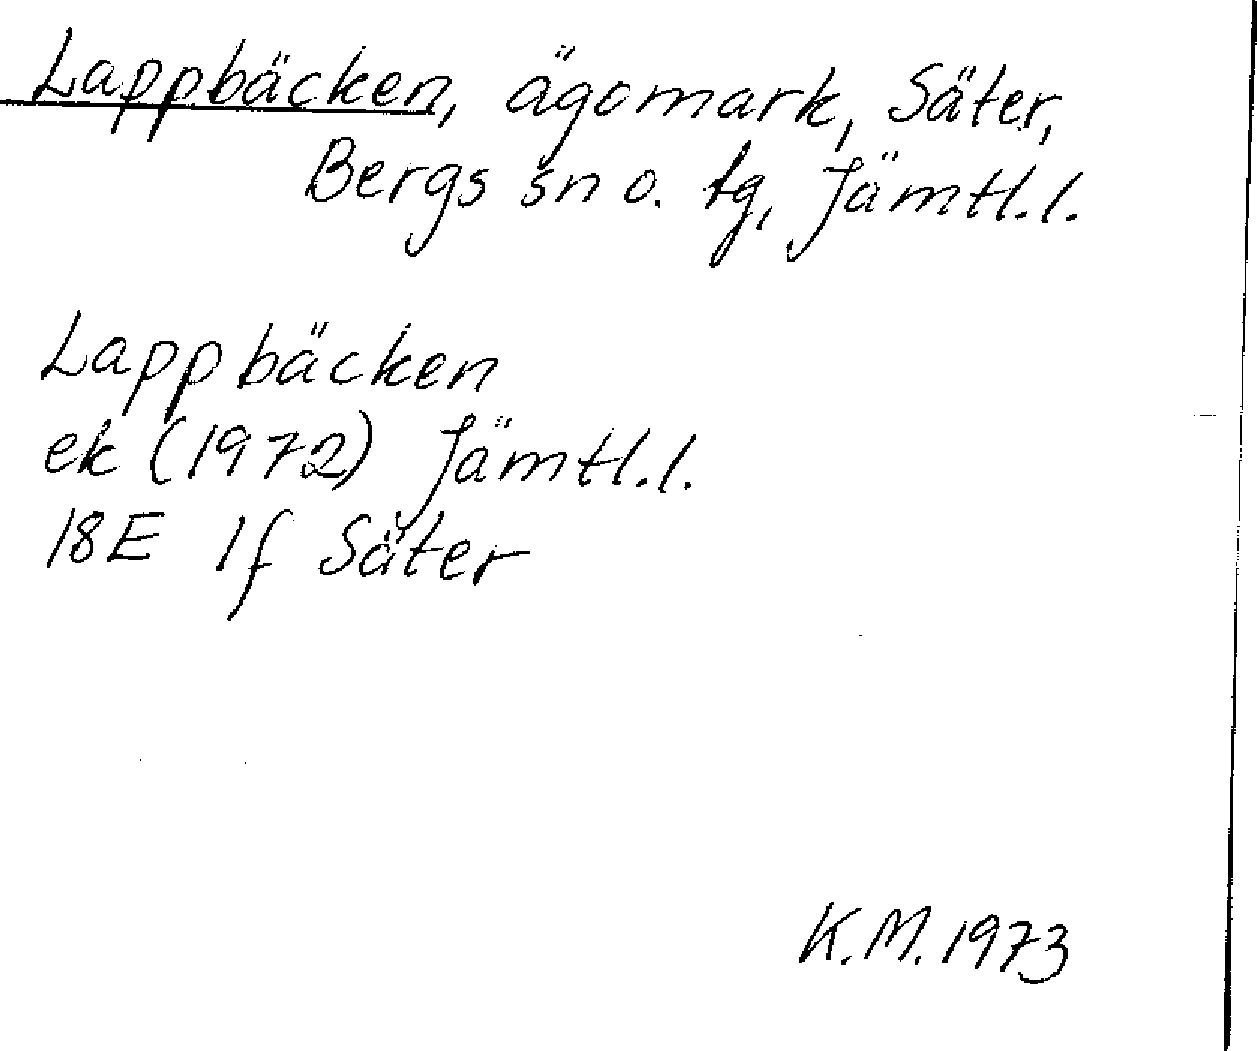 Lappbäcken, ägomark, Säter,
Bergs sn o. tg, Jämtl.l.
Lappbäcken
ek (1972) Jämtl.l.
18E 1f Säter
K.M. 1973